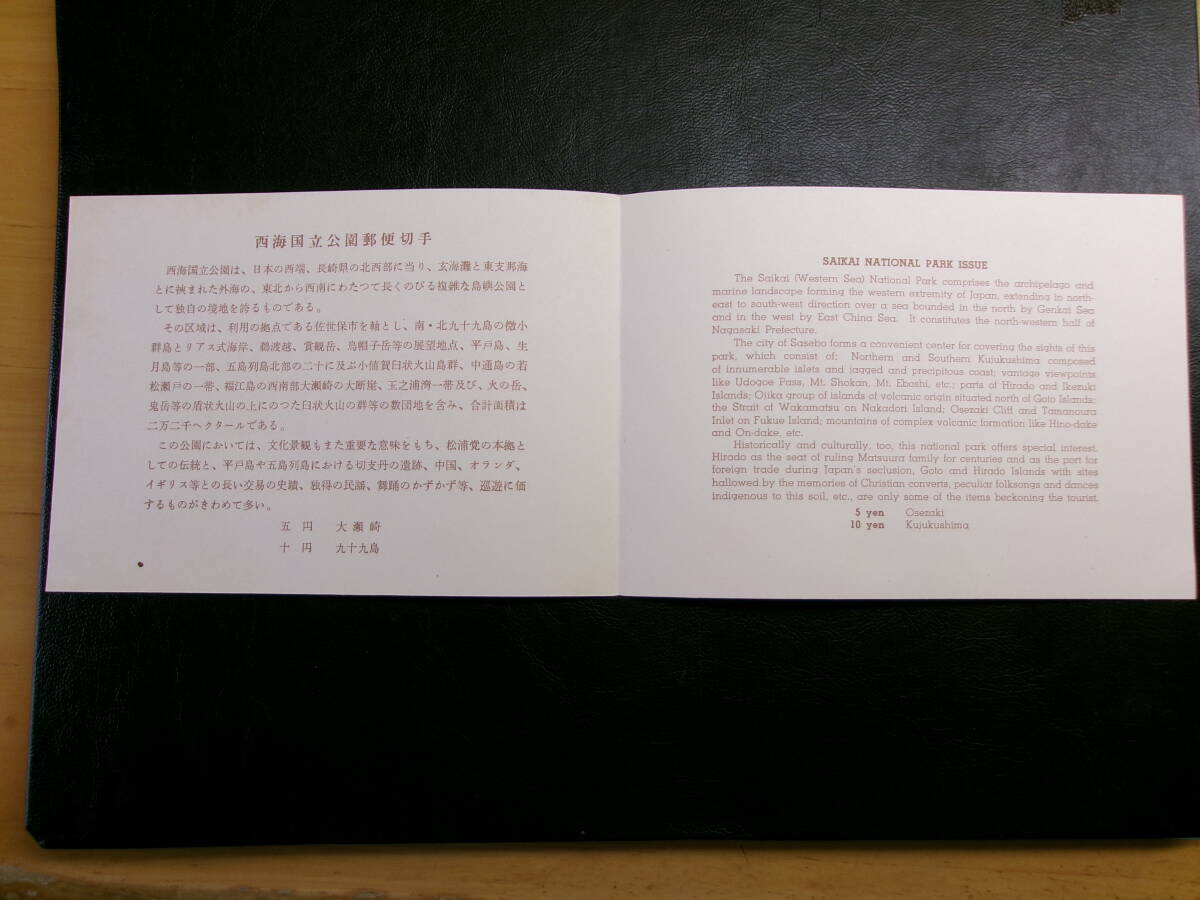 西海国立公園郵便切手
西海国立公園は、日本の西端、長崎県の北西部に当り、玄海灘と東支那海
とに挾まれた外海の、東北から西南にわたつて長くのびる複雑な島嶼公園と
して独自の境地を誇るものである。
その区域は、利用の拠点である佐世保市を軸とし、南・北九十九島の微小
群島とリアス式海岸、鵜渡越、賞観岳、烏帽子岳等の展望地点、平戸島、生
月島等の一部、五島列島北部の二十に及ぶ小値賀臼状火山島群、中通島の若
松瀬戸の一帯、福江島の西南部大瀬崎の大断崖、玉之浦湾一帯及び、火の岳、
鬼岳等の盾状火山の上にのつた臼状火山の群等の数団地を含み、合計面積は
二万二千ヘクタールである。
この公園においては、文化景観もまた重要な意味をもち、松浦党の本拠と
しての伝統と、平戸島や五島列島における切支丹の遺跡、中国、オランダ、
イギリス等との長い交易の史蹟、独得の民謡、舞踊のかずかず等、巡遊に価
するものがきわめて多い。
五円 大瀬崎
十円 九十九島
SAIKAI NATIONAL PARK ISSUE
The Saikai (Western Sea) National Park comprises the archipelago and
marine landscape forming the western extremity of Japan, extending in north-
east to south-west direction over a sea bounded in the north by Genkai Sea
and in the west by East China Sea. It constitutes the north-western half of
Nagasaki Prefecture.
The city of Sasebo forms a convenient center for covering the sights of this
park, which consist of: Northern and Southern Kujukushima composed
of innumerable islets and jagged and precipitous coast; vantage viewpoints
like Udogoe Pass, Mt. Shokan, Mt. Eboshi, etc.; parts of Hirado and Ikezuki
Islands; Ojika group of islands of volcanic origin situated north of Goto Islands;
the Strait of Wakamatsu on Nakadori Island; Osezaki Cliff and Tamanoura
Inlet on Fukue Island; mountains of complex volcanic formation like Hino-dake
and On-dake, etc.
Historically and culturally, too, this national park offers special interest.
Hirado as the seat of ruling Matsuura family for centuries and as the port for
foreign trade during Japan's seclusion, Goto and Hirado Islands with sites
hallowed by the memories of Christian converts, peculiar folksongs and dances
indigenous to this soil, etc., are only some of the items beckoning the tourist.
5 yen Osezaki
10 yen Kujukushima